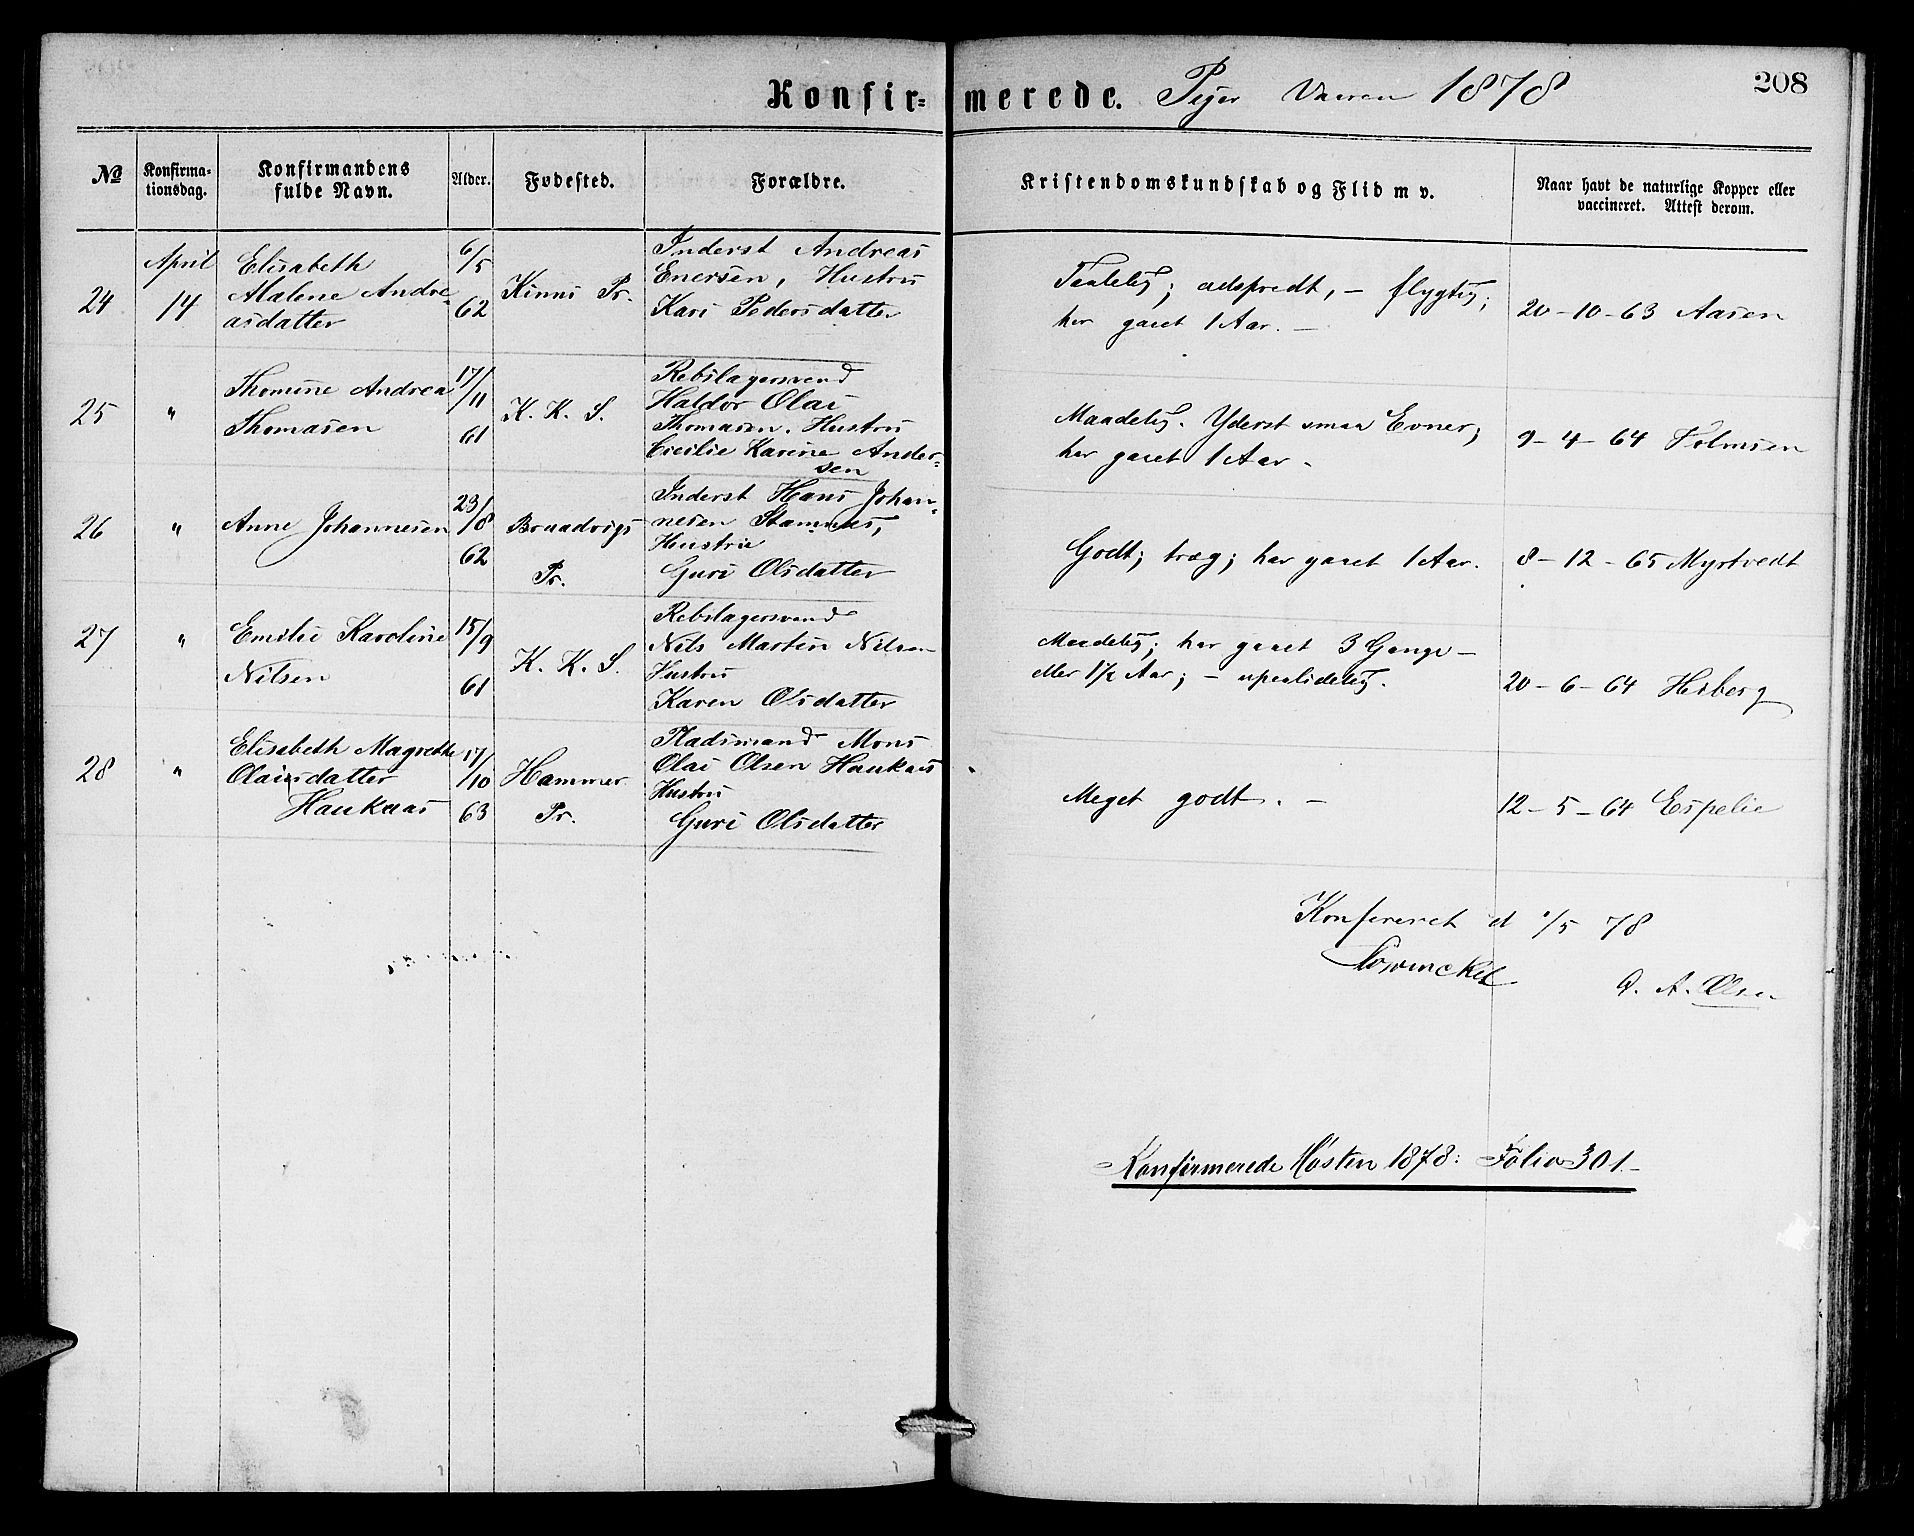 208
Konfir= merede. Piger Vaaren 1878
No
Konfirma-
tionsdag.
Konfirmandens
fulde Navn.
Alder.
Fødested.
Forældre.
Kristendomskundskab og Flid m v.
Naar havt de naturlige Kopper eller
vaccineret. Attest derom.
24
April
14
Elisabeth
Malene Andre-
asdatter
6/5
62
Kinns Pr.
Inderst Andreas
Enersen, Hustru
Kari Pedersdatter
Taalelig; adspredt, - flygtig;
har gaaet 1 Aar. -
20-10-63 Aasen
25
"
Thomine Andrea
Thomasen
17/11
61
K. K. S.
Rebslagersvend
Haldor Olai
Thomasen. Hustru
Cecilie Karine Ander-
sen
Maadelig. Yderst smaa Evner;
har gaaet 1 Aar.
9-4-64 Holmsen
26
"
Anne Johannesen
23/8
62
Braadvigs
Pr.
Inderst Hans Johan-
nesen Stamnæs,
Hustru
Guri Olsdatter
Godt; træg; har gaaet 1 Aar.
8-12-65 Myrtvedt
27
"
Emilie Karoline
Nilsen
15/9
61
K. K. S.
Rebslagersvend
Nils Martin Nilsen
Hustru
Karen Olsdatter
Maadelig; har gaaet 3 Gange -
eller 1½ Aar; - upaalidelig.
20-6-64 Heiberg
28
"
Elisabeth Magrethe
Olaisdatter
Haukaas
17/10
63
Hammer
Pr.
Pladsmand Mons
Olai Olsen Haukaas
Hustru
Guri Olsdatter
Meget godt. -
12-5-64 Espelie
Konfereret d 1/5 78
Lowinckel
O. A. Olsen
Konfirmerede Høsten 1878: Folio 301-